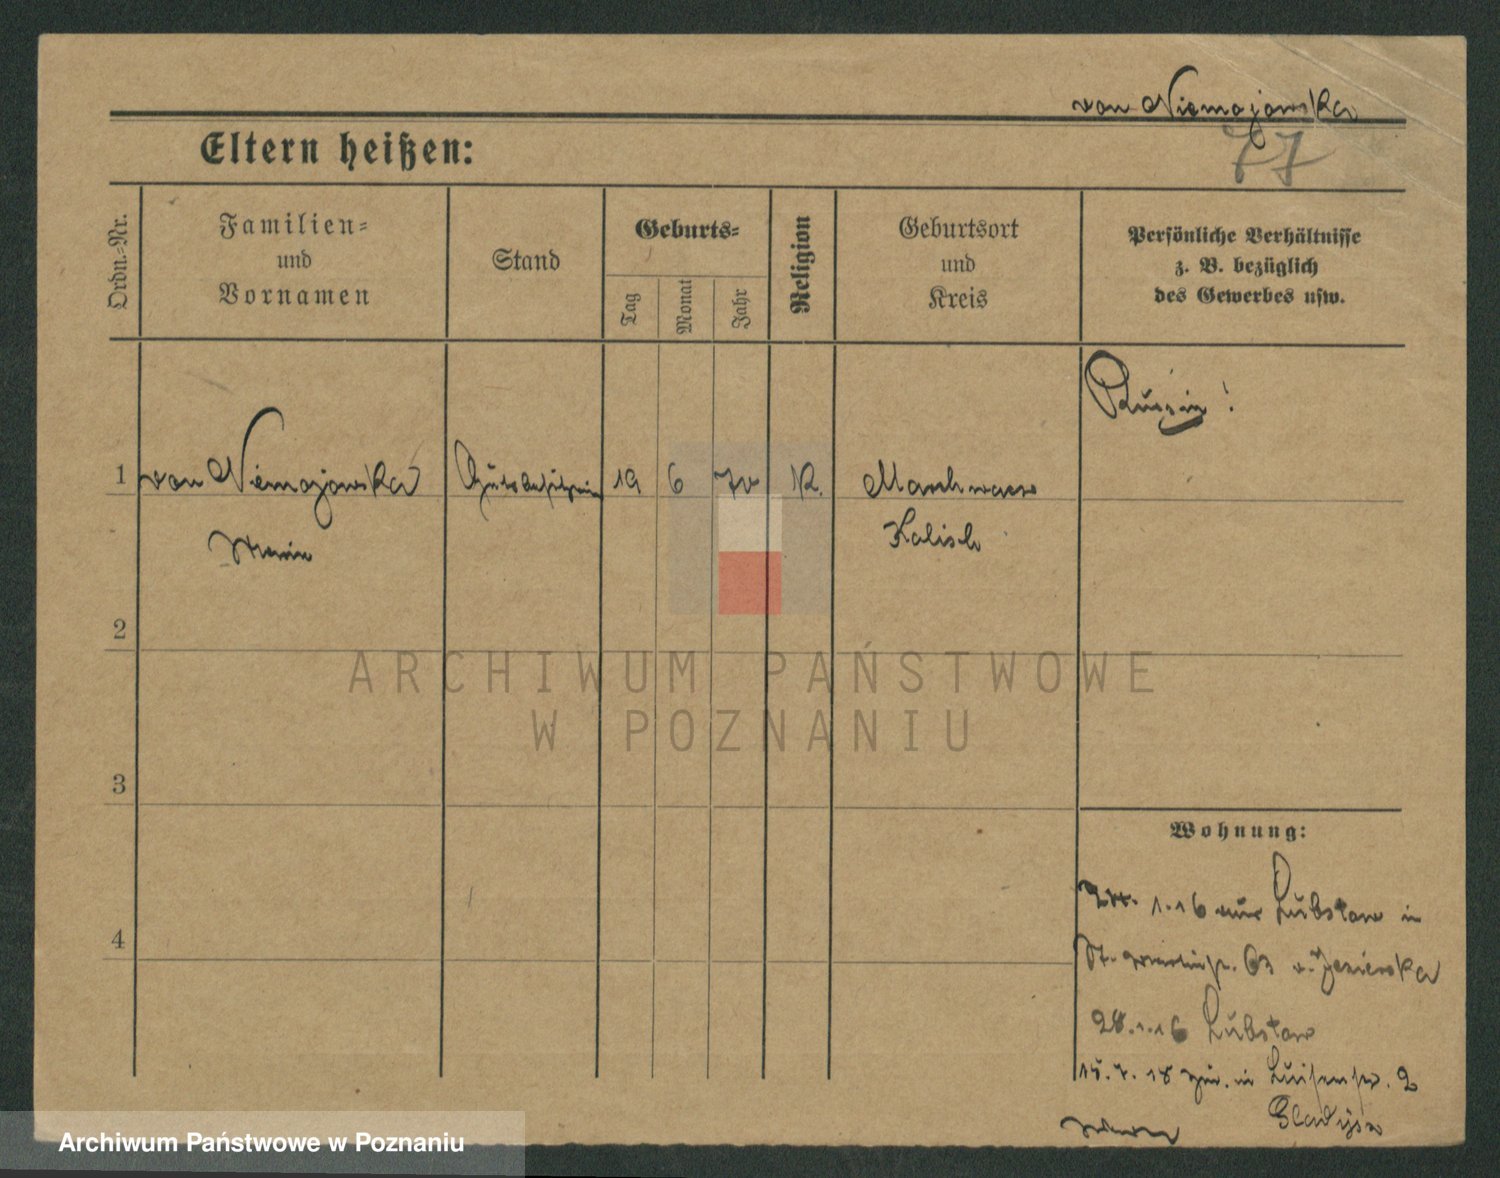 von Niemojowska
77
Eltern heißen:
Ordn.-Nr.
Familien-
und
Vornamen
Stand
Geburts-
Tag
Monat
Jahr
Religion
Geburtsort
und
Kreis
Persönliche Verhältnisse
z. B. bezüglich
des Gewerbes usw.
Russin!
1 von Niemojowska Gutsbesitzerin 19 6 70 K. Marchwacz
Marie Kalisch
2
3
4
ARCHIWUM PAŃSTWOWE
W POZNANIU
Wohnung:
1.16 aus Lubstow in
St. Martinstr. 63 v. Jezierska
28.1.16 Lubstow
15.7.18 in Luisenstr. 2
Archiwum Państwowe w Poznaniu